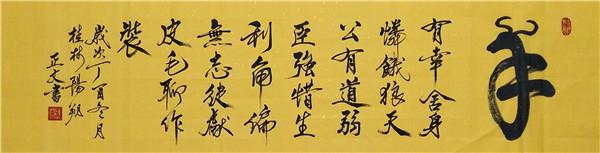 羊
有幸舍身
憐餓狼天
公有道弱
臣強惜生
利角偏
無志徒獻
皮毛聊作
裝
歲次丁酉冬月
桂林陽朔
正文書